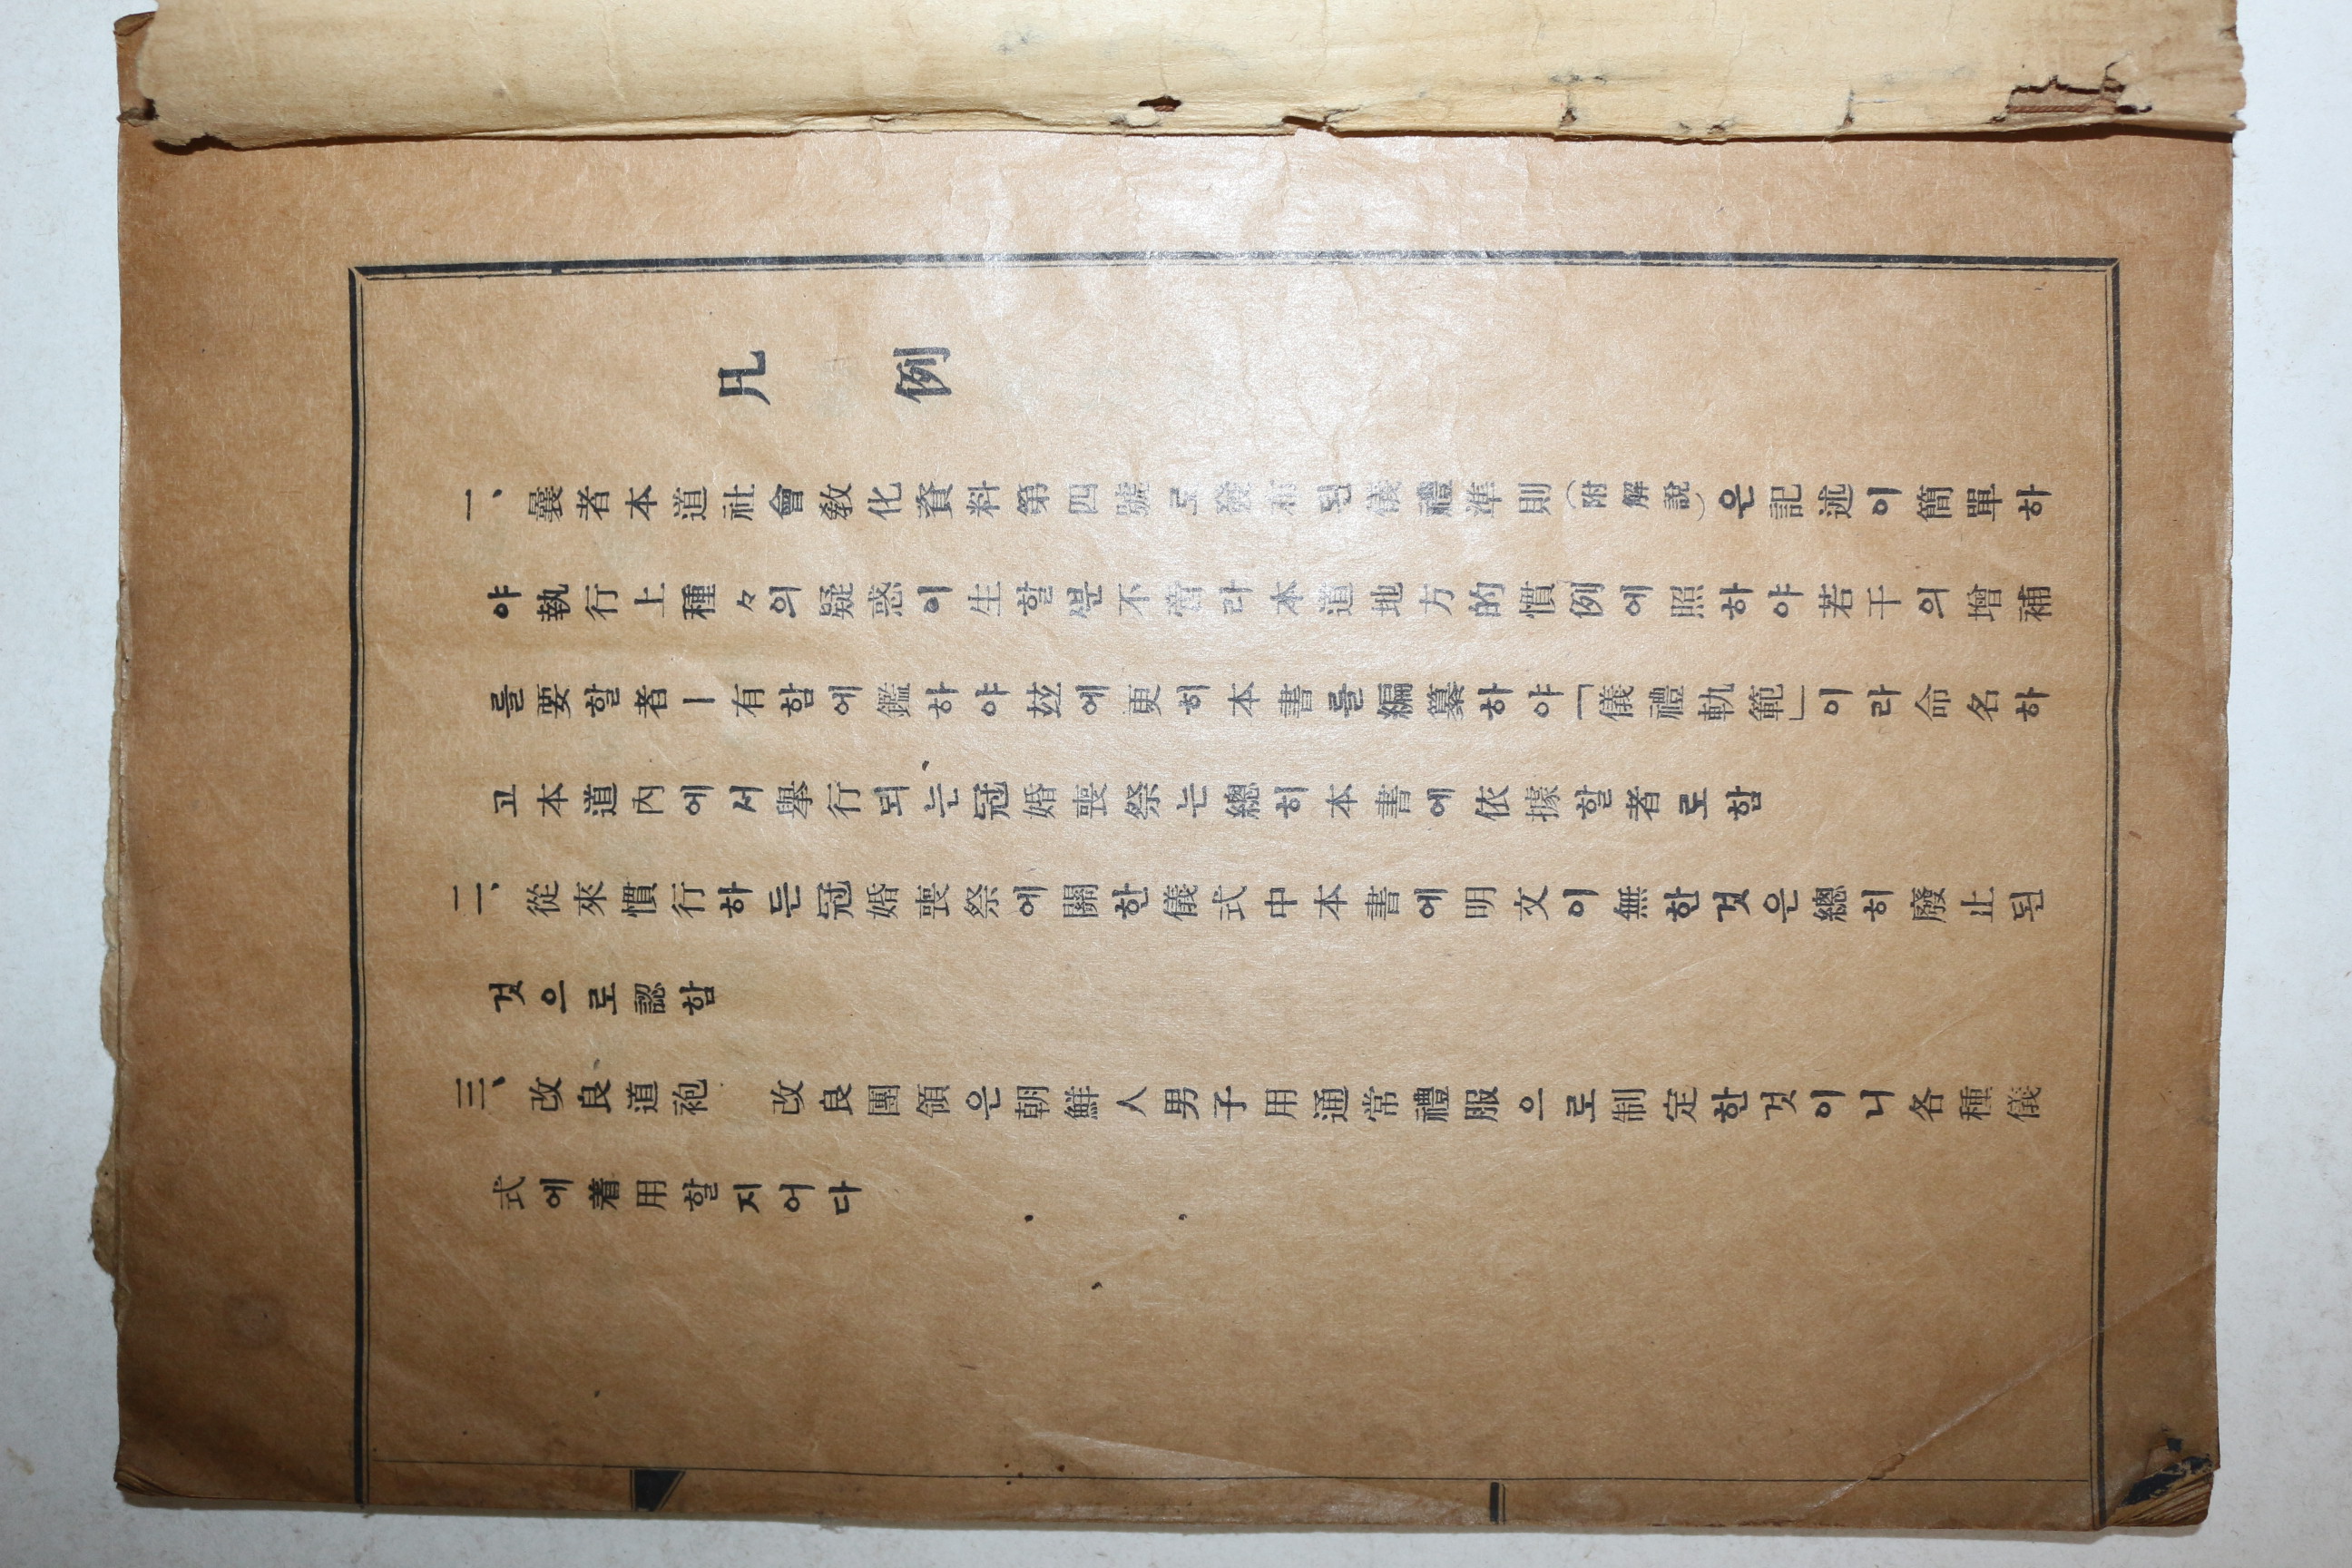 凡例
一、曩者本道社會敎化資料第四號로發布된儀禮準則(附解說)은記述이簡單하
야執行上種々의疑惑이生할ᄲᅮᆫ不啻라本道地方的慣例에照하야若干의增補
를要할者ㅣ有함에鑑하야玆에更히本書를編纂하야「儀禮軌範」이라命名하
고本道內에서擧行되는冠婚喪祭는總히本書에依據할者로함
二、從來慣行하든冠婚喪祭에關한儀式中本書에明文이無한것은總히廢止된
것으로認함
三、改良道袍 改良團領은朝鮮人男子用通常禮服으로制定한것이니各種儀
式에着用할지어다